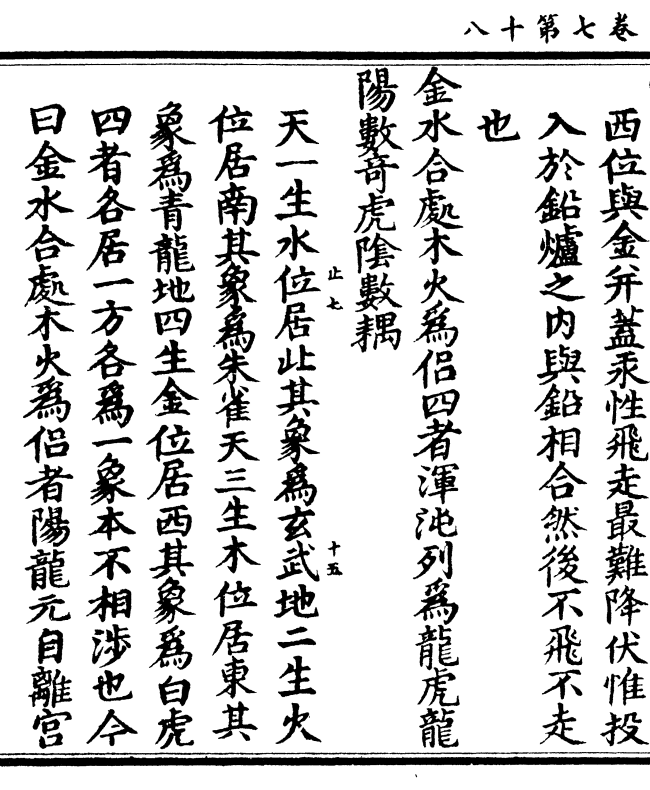 卷七第十八
西位與金并蓋汞性飛走最難降伏惟投
入於鉛爐之内與鉛相合然後不飛不走
也
金水合處木火爲侣四者渾沌列爲龍虎龍
陽數奇虎陰數耦
天一生水位居北其象爲玄武地二生火
位居南其象爲朱雀天三生木位居東其
象爲青龍地四生金位居西其象爲白虎
四者各居一方各爲一象本不相涉也今
曰金水合處木火爲侣者陽龍元自離宫
止七
十五